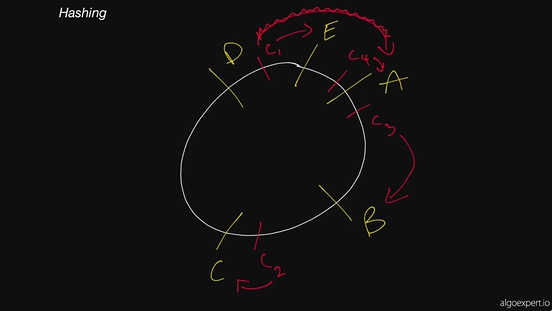 Hashing
E
D
C1
C4
A
C3
B
C2
C
algoexpert.io